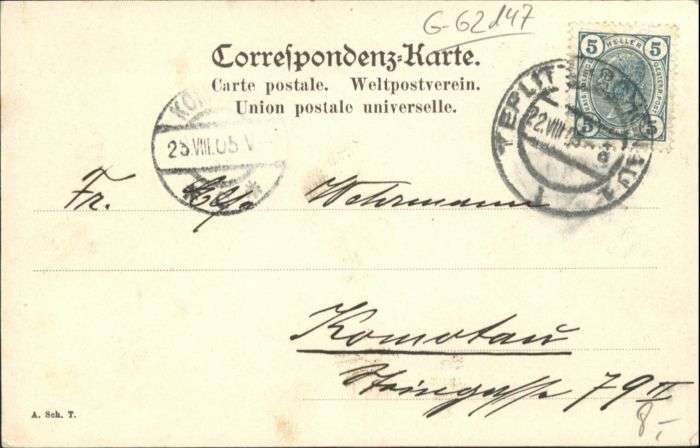 G-62147
Correspondenz-Karte.
Carte postale. Weltpostverein.
Union postale universelle.
5 HELLER 5
5 5
TEPLITZ
22.VIII.05
1
KO
23.VIII.05 V
Fr. Wehrmann
Komotau
Steingasse 79 II
8,-
A. Sch. T.